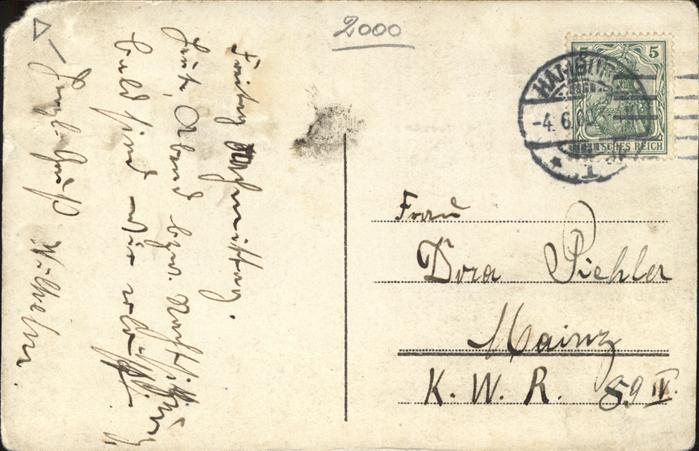 2000
5 5
HAMBURG
-4.6.0
* 1
DEUTSCHES REICH
Freitag Nachmittag.
Heute Abend bzw. Nacht
bald sind wir
Gruß Wilhelm.
Frau
Dora Piehler
Mainz
K. W. R. 59 IV.